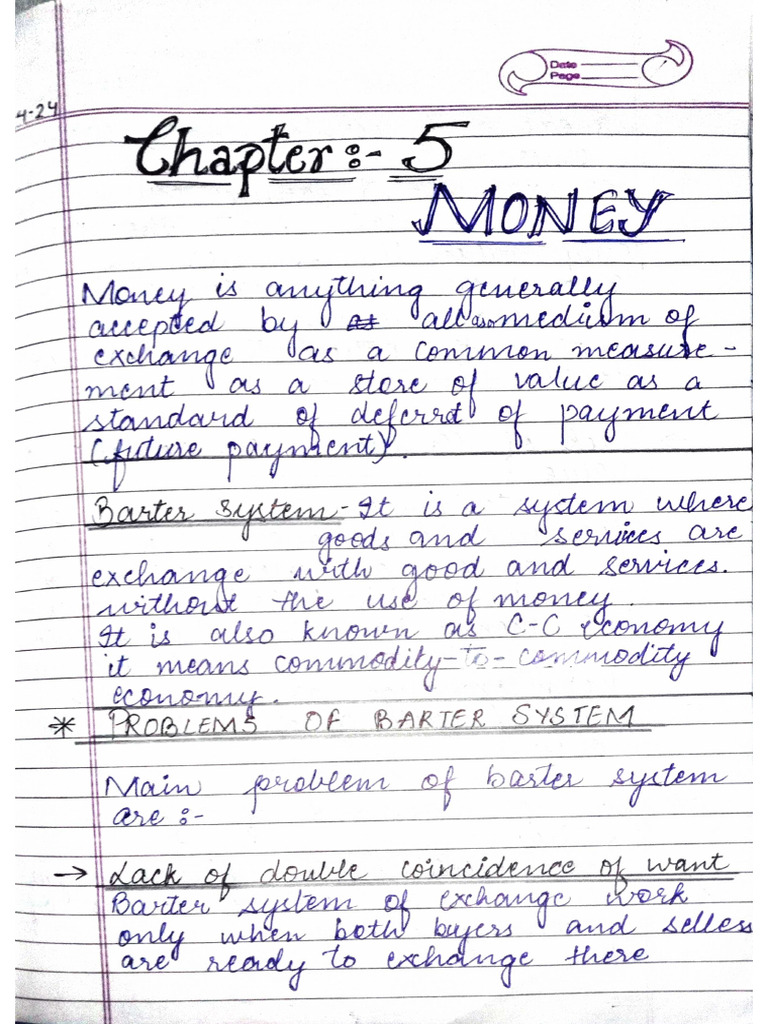 Date
Page
4-24
Chapter:- 5
MONEY
Money is anything generally
accepted by as all as medium of
exchange as a common measure-
ment as a store of value as a
standard of deferrd of payment
(future payment).
Barter System - It is a system where
goods and services are
exchange with good and services.
without the use of money.
It is also known as C-C economy
it means commodity-to-commodity
economy.
* PROBLEMS OF BARTER SYSTEM
Main problem of barter system
are :-
→ Lack of double coincidence of want
Barter system of exchange work
only when both buyers and sellers
are ready to exchange there